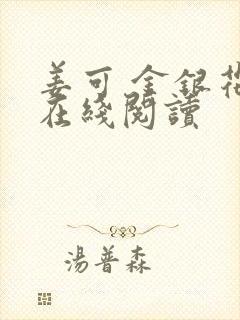 姜可 金銀花
在綫閱讀
湯普森